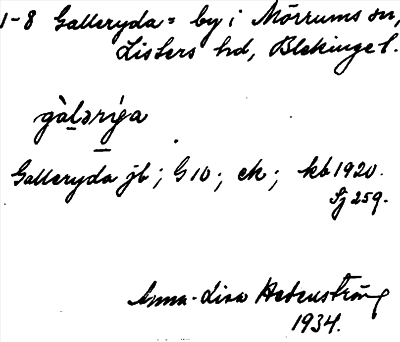 1-8 Galleryda = by i Mörrums sn,
Listers hd, Blekinge l.
gàl̲əri̲ga
Galleryda jb ; G10 ; ek ; kb 1920.
Sj 259.
Anna-Lisa Hedenström
1934.